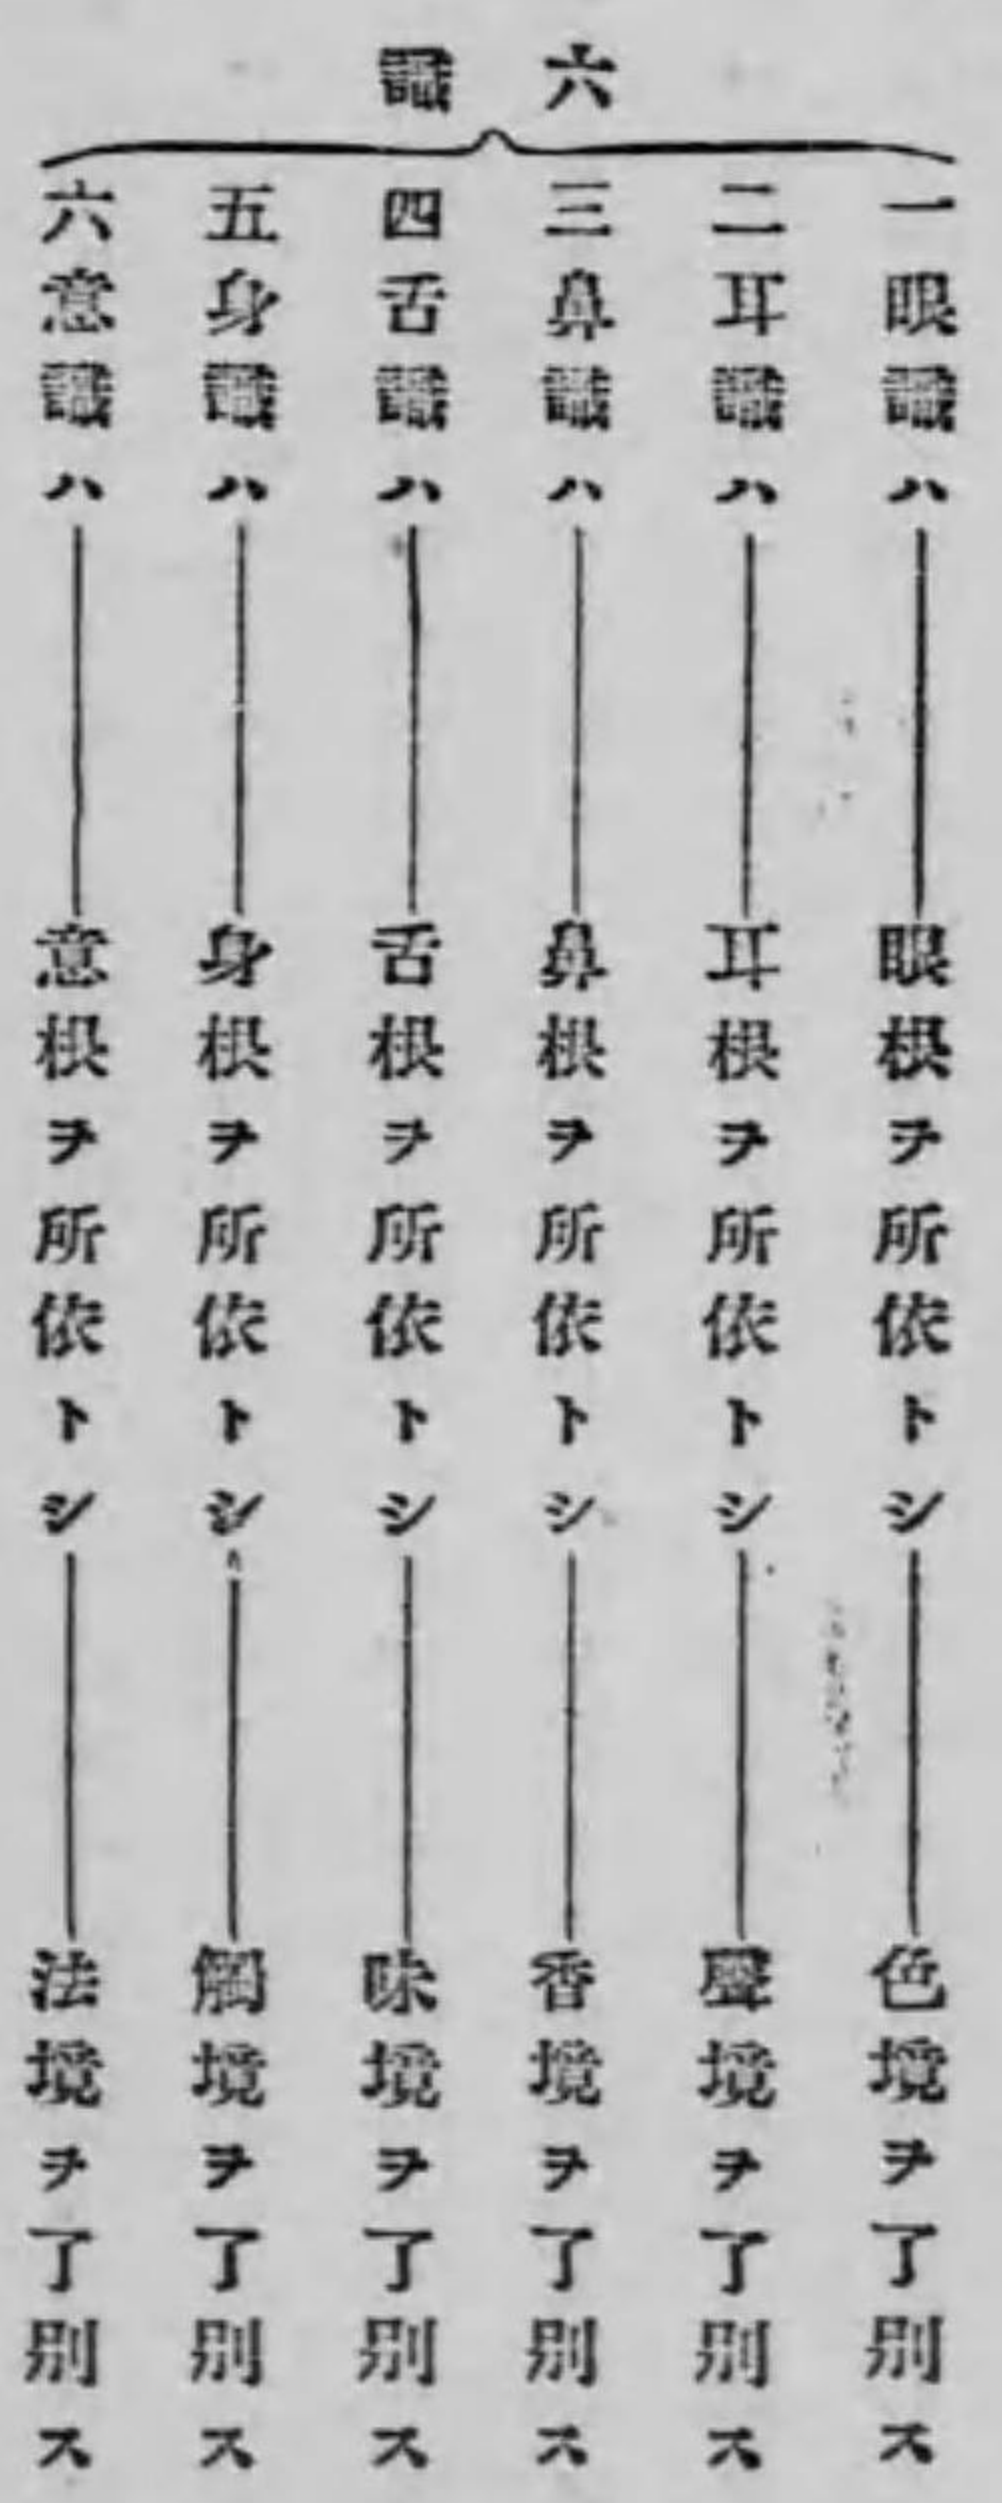 六識
一眼識ハ――眼根ヲ所依トシ――色境ヲ了別ス
二耳識ハ――耳根ヲ所依トシ――聲境ヲ了別ス
三鼻識ハ――鼻根ヲ所依トシ――香境ヲ了別ス
四舌識ハ――舌根ヲ所依トシ――味境ヲ了別ス
五身識ハ――身根ヲ所依トシ――觸境ヲ了別ス
六意識ハ――意根ヲ所依トシ――法境ヲ了別ス